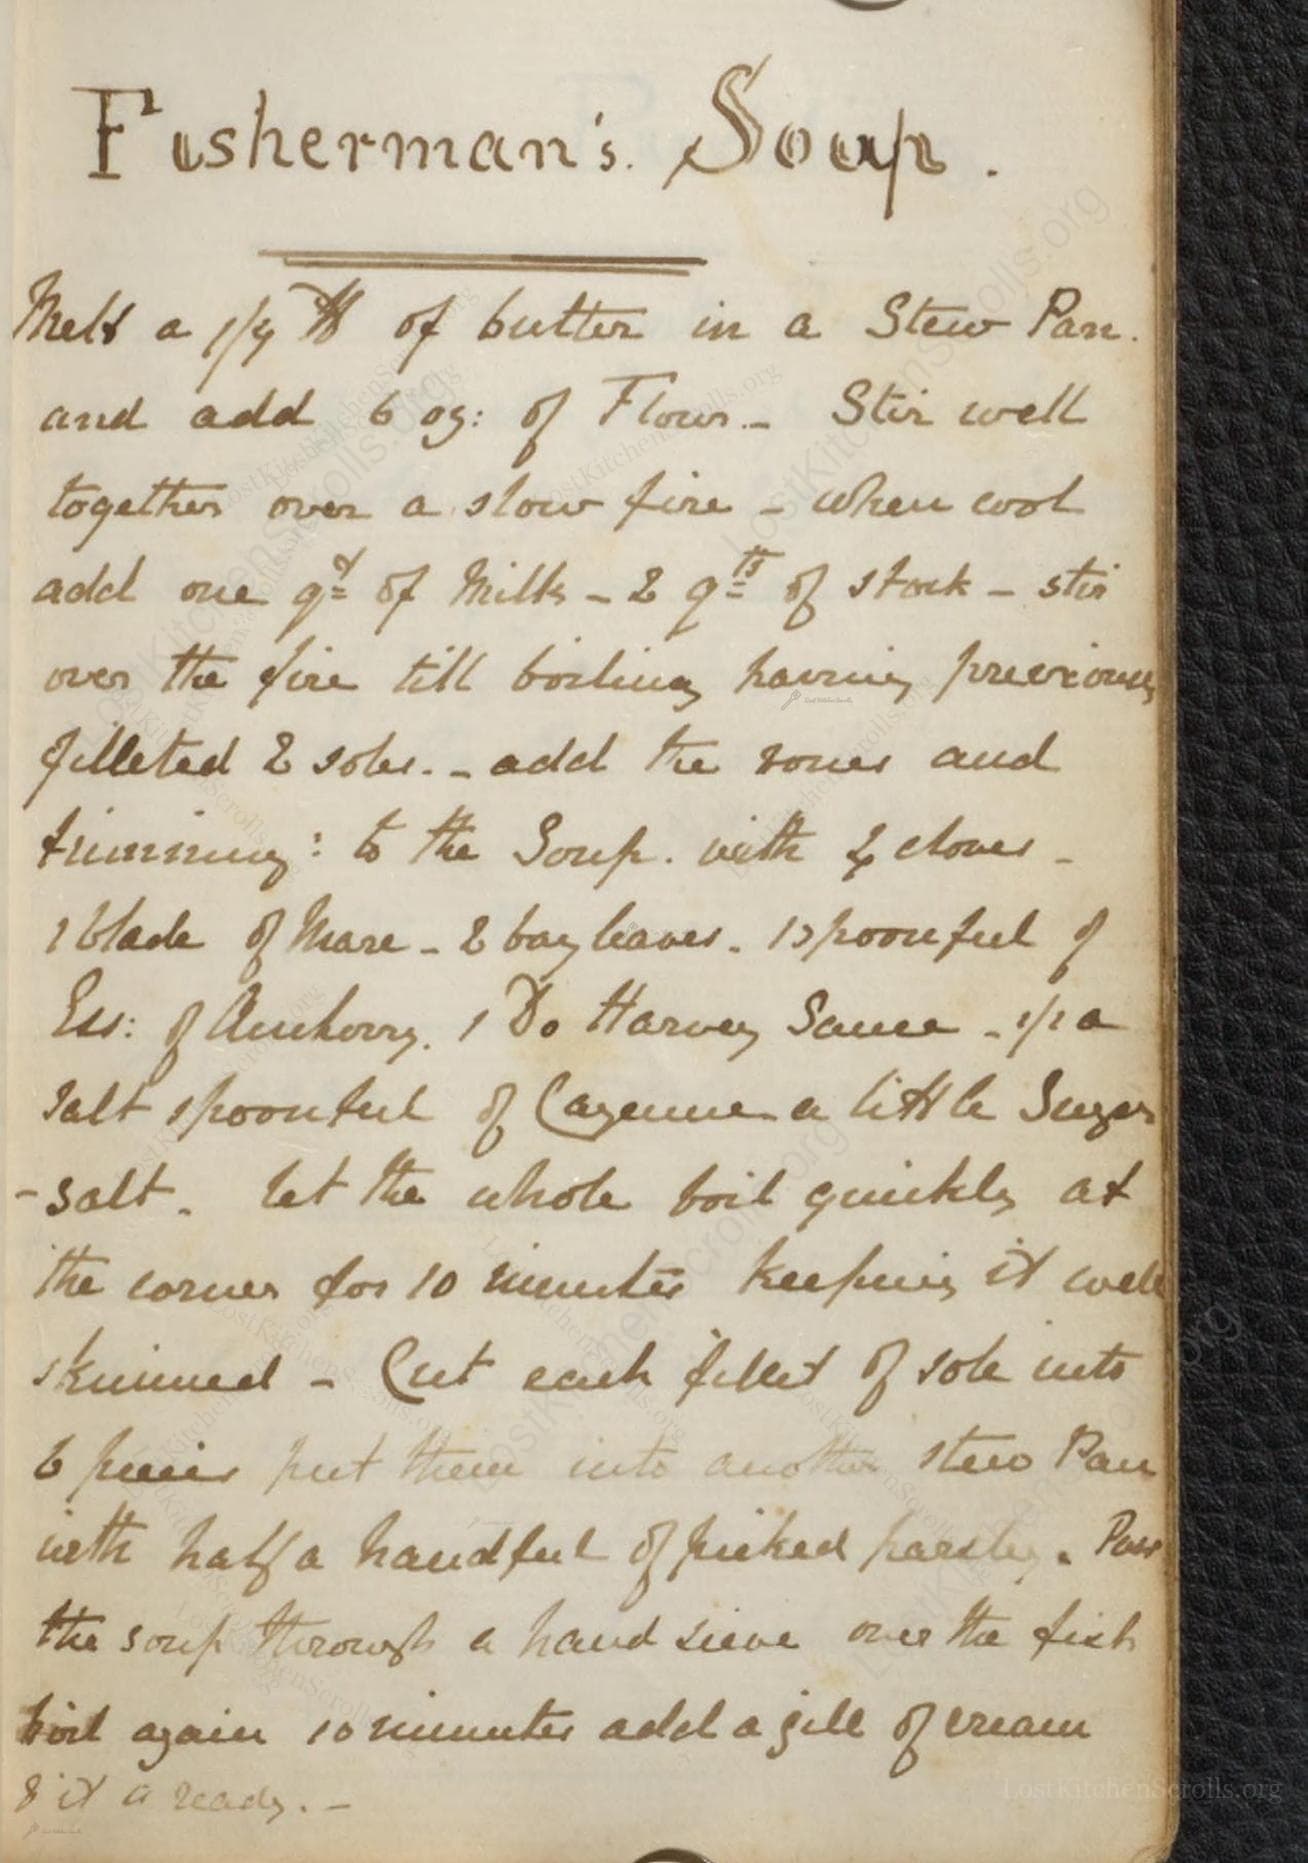 Fisherman's. Soup.
Melt a 1/4 lb of butter in a Stew Pan.
and add 6 oz: of Flour. - Stir well
together over a slow fire - when cool
add one qt of Milk - 2 qts of stock - stir
over the fire till boiling having previously
filleted 2 soles. - add the bones and
trimming: to the Soup. with 4 cloves -
1 blade of Mace - 2 bay leaves. 1 spoonful of
Ess: of Anchovy. 1 Do Harvey Sauce - 1/2 a
salt spoonful of Cayenne a little Sugar
- salt. let the whole boil quickly at
the corner for 10 minutes keeping it well
skimmed - Cut each fillet of sole into
6 pieces put them into another stew Pan
with half a handful of picked parsley. Pass
the soup through a hand sieve over the fish
boil again 10 minutes add a gill of cream
& it is ready. -
LostKitchenScrolls.org